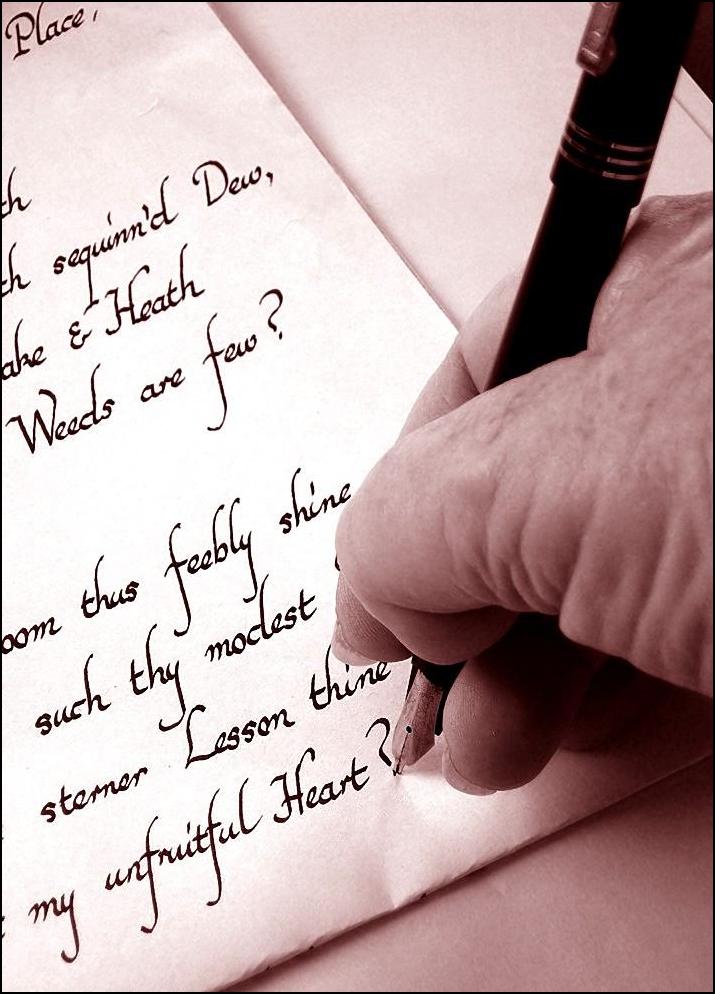 Place,
th
th sequinn'd Dew,
ake & Heath
Weeds are few?
oom thus feebly shine
such thy modest
sterner Lesson thine
my unfruitful Heart?